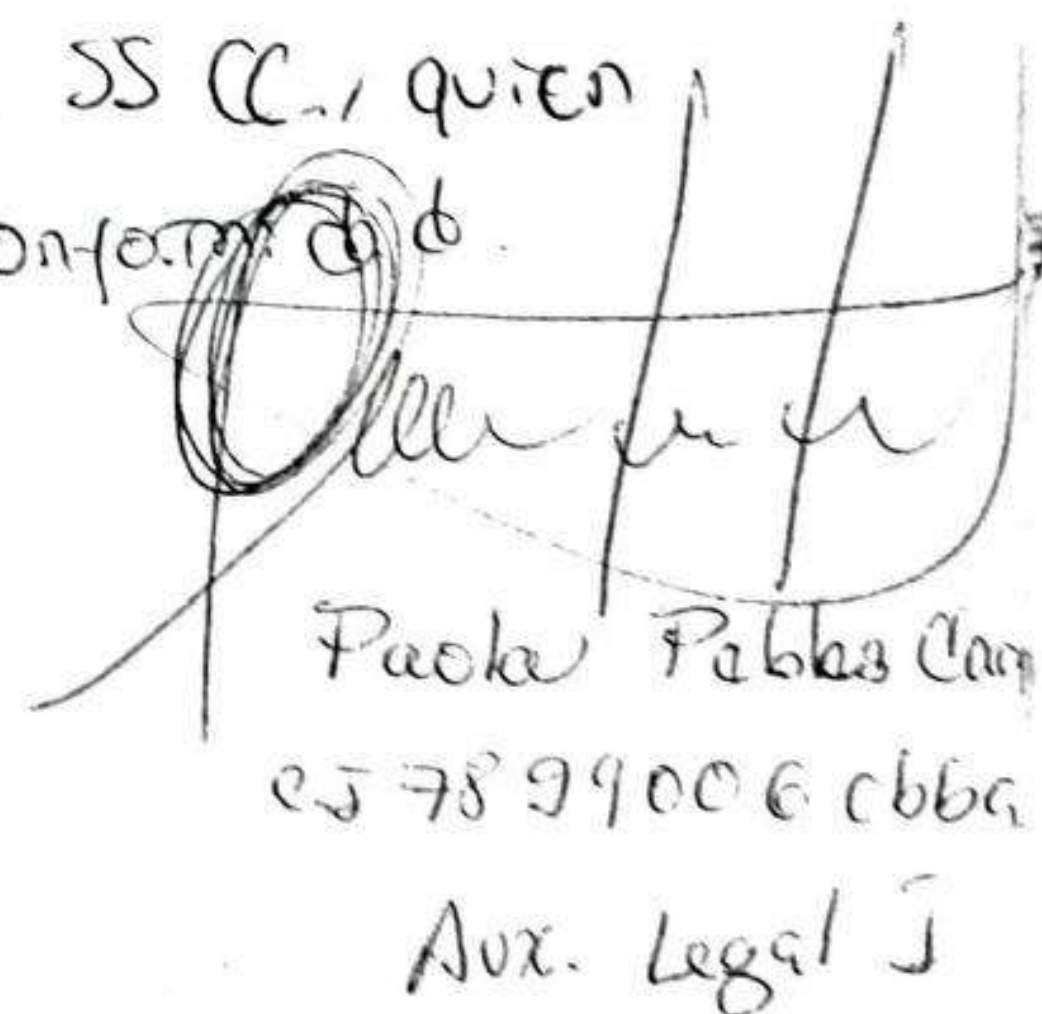 SS CC., quien
onformidad.
Paola Pablos Cam
CI 7899006 cbba
Aux. Legal I